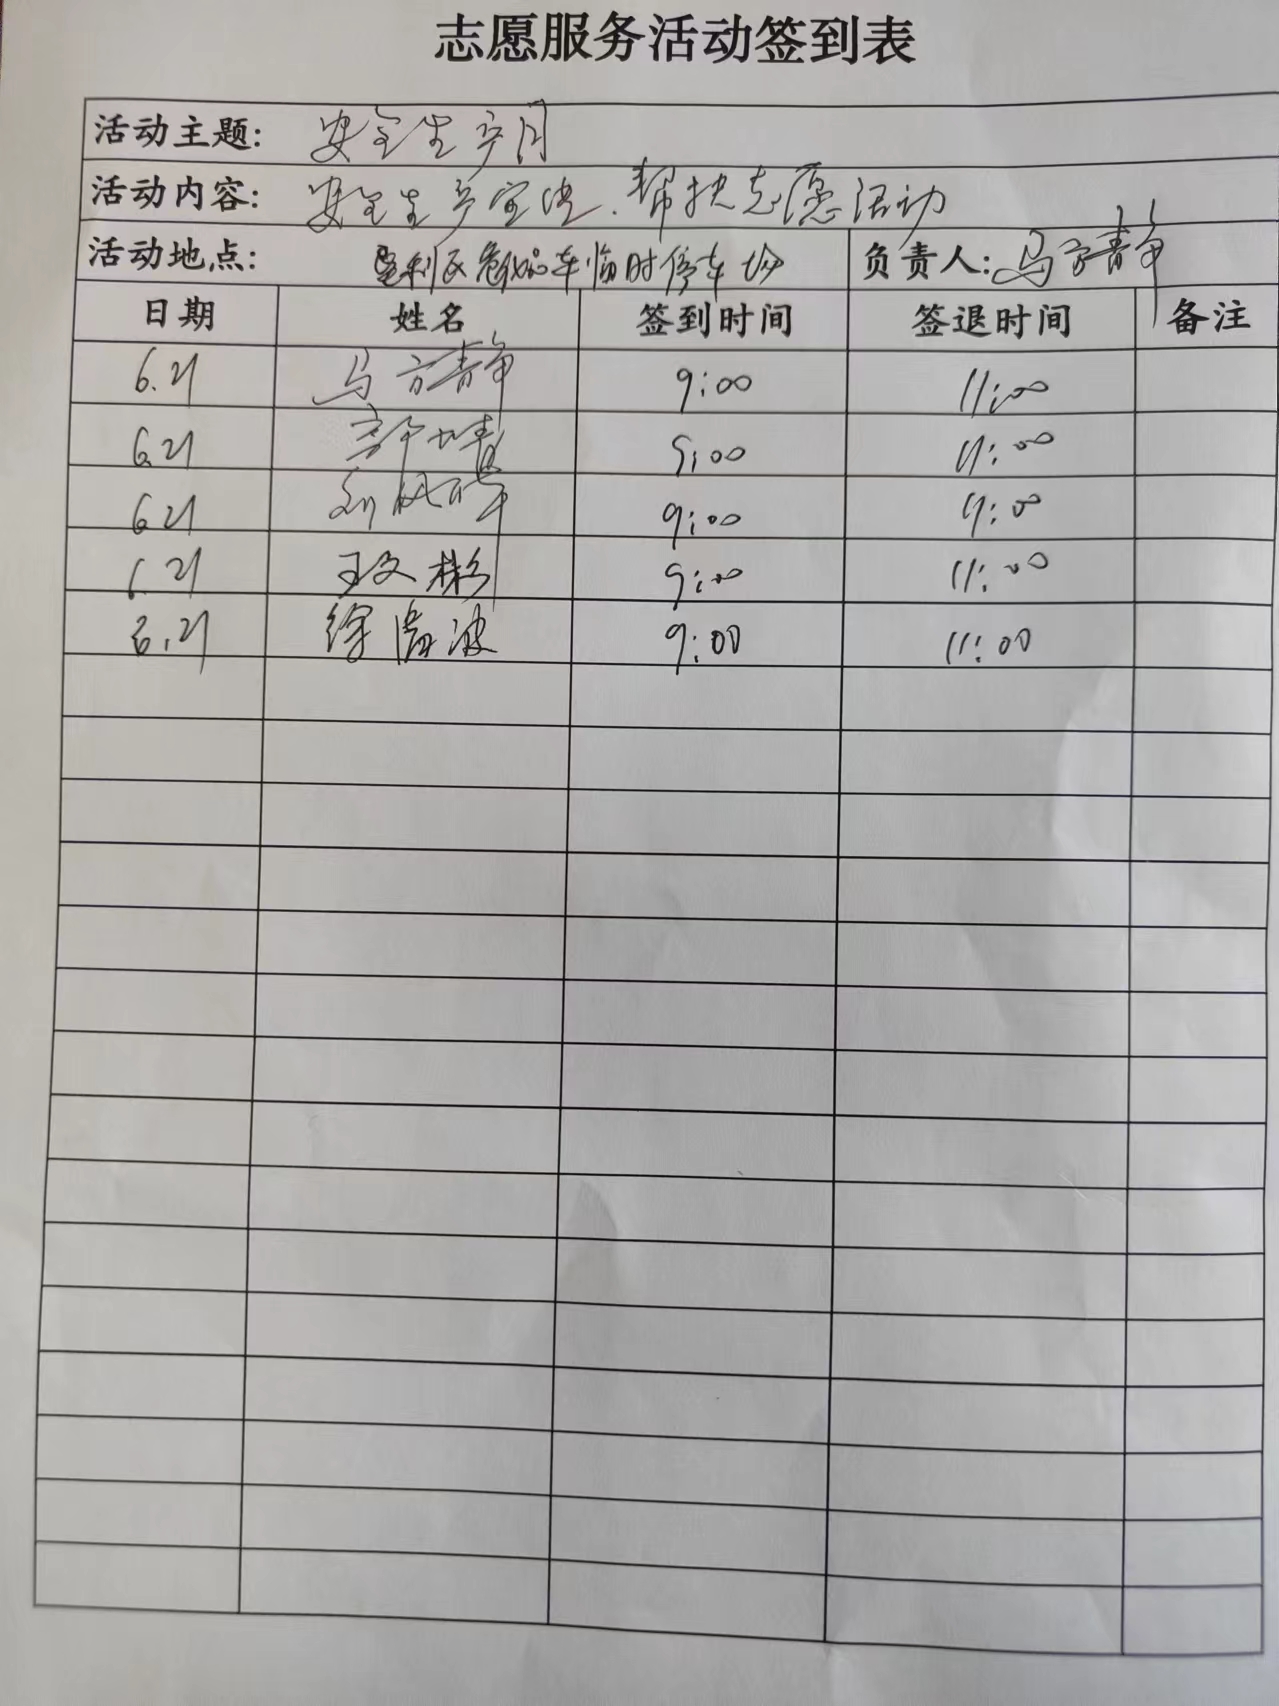 志愿服务活动签到表
活动主题: 安全生产月
活动内容: 安全生产宣传、帮扶志愿活动
活动地点: 垦利区危化品车临时停车场 负责人: 马方静
日期 姓名 签到时间 签退时间 备注
6.21 马方静 9:00 11:00
6.21 9:00 11:00
6.21 9:00 11:00
6.21 王文彬 9:00 11:00
6.21 徐海波 9:00 11:00